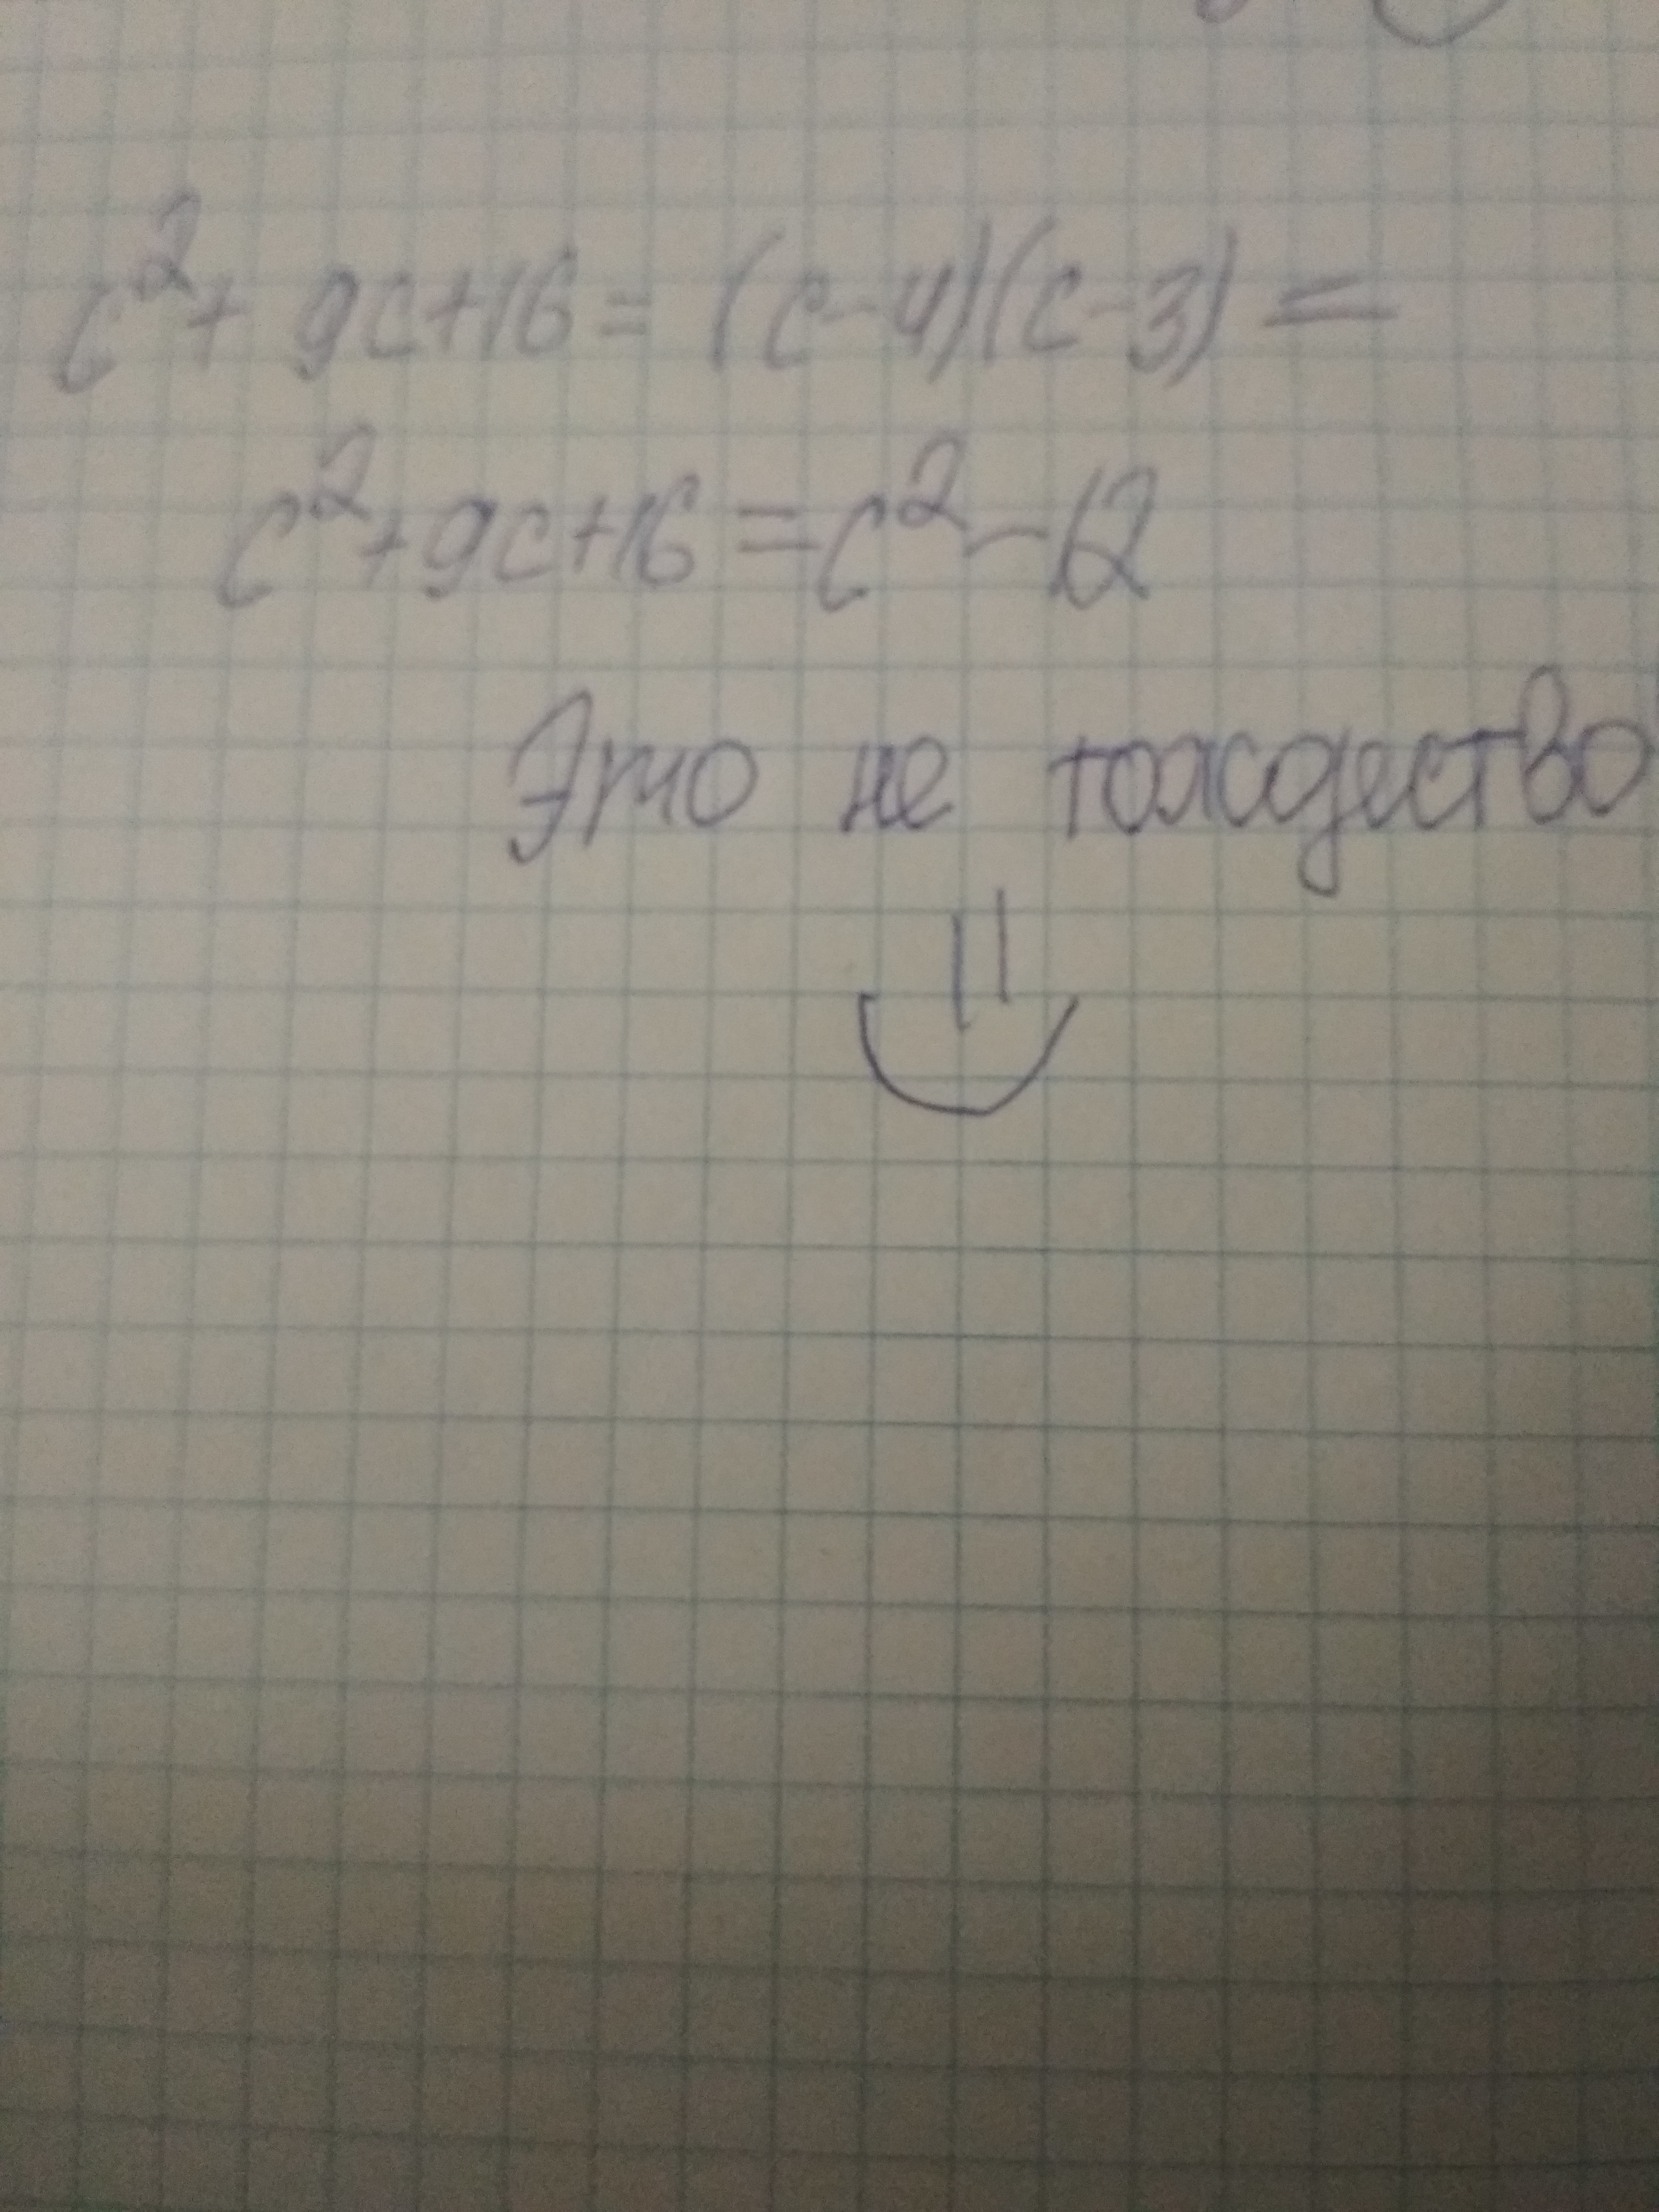 c²+ 9c+16= (c-4)(c-3) =
c²+9c+16 = c² - 12
Это не тождество